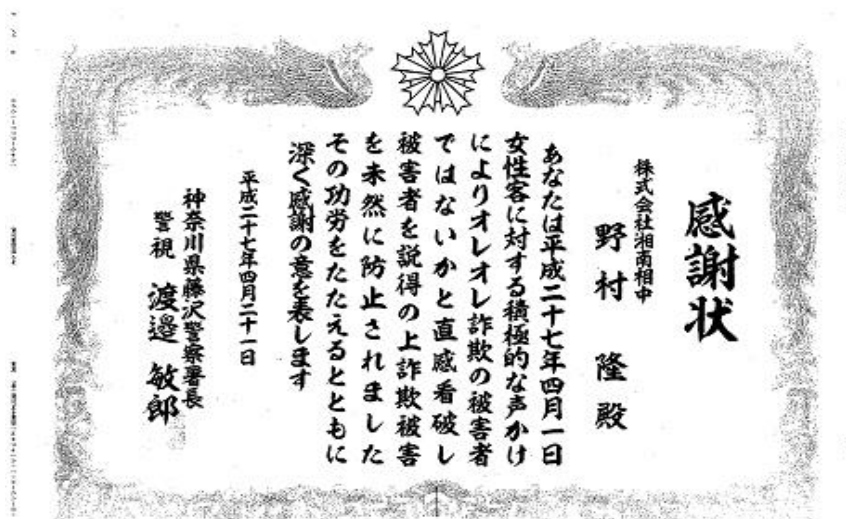 感謝状
株式会社湘南相中
野村 隆 殿
あなたは平成二十七年四月一日
女性客に対する積極的な声かけ
によりオレオレ詐欺の被害者
ではないかと直感看破し
被害者を説得の上詐欺被害
を未然に防止されました
その功労をたたえるとともに
深く感謝の意を表します
平成二十七年四月二十一日
神奈川県藤沢警察署長
警視 渡邉 敏郎